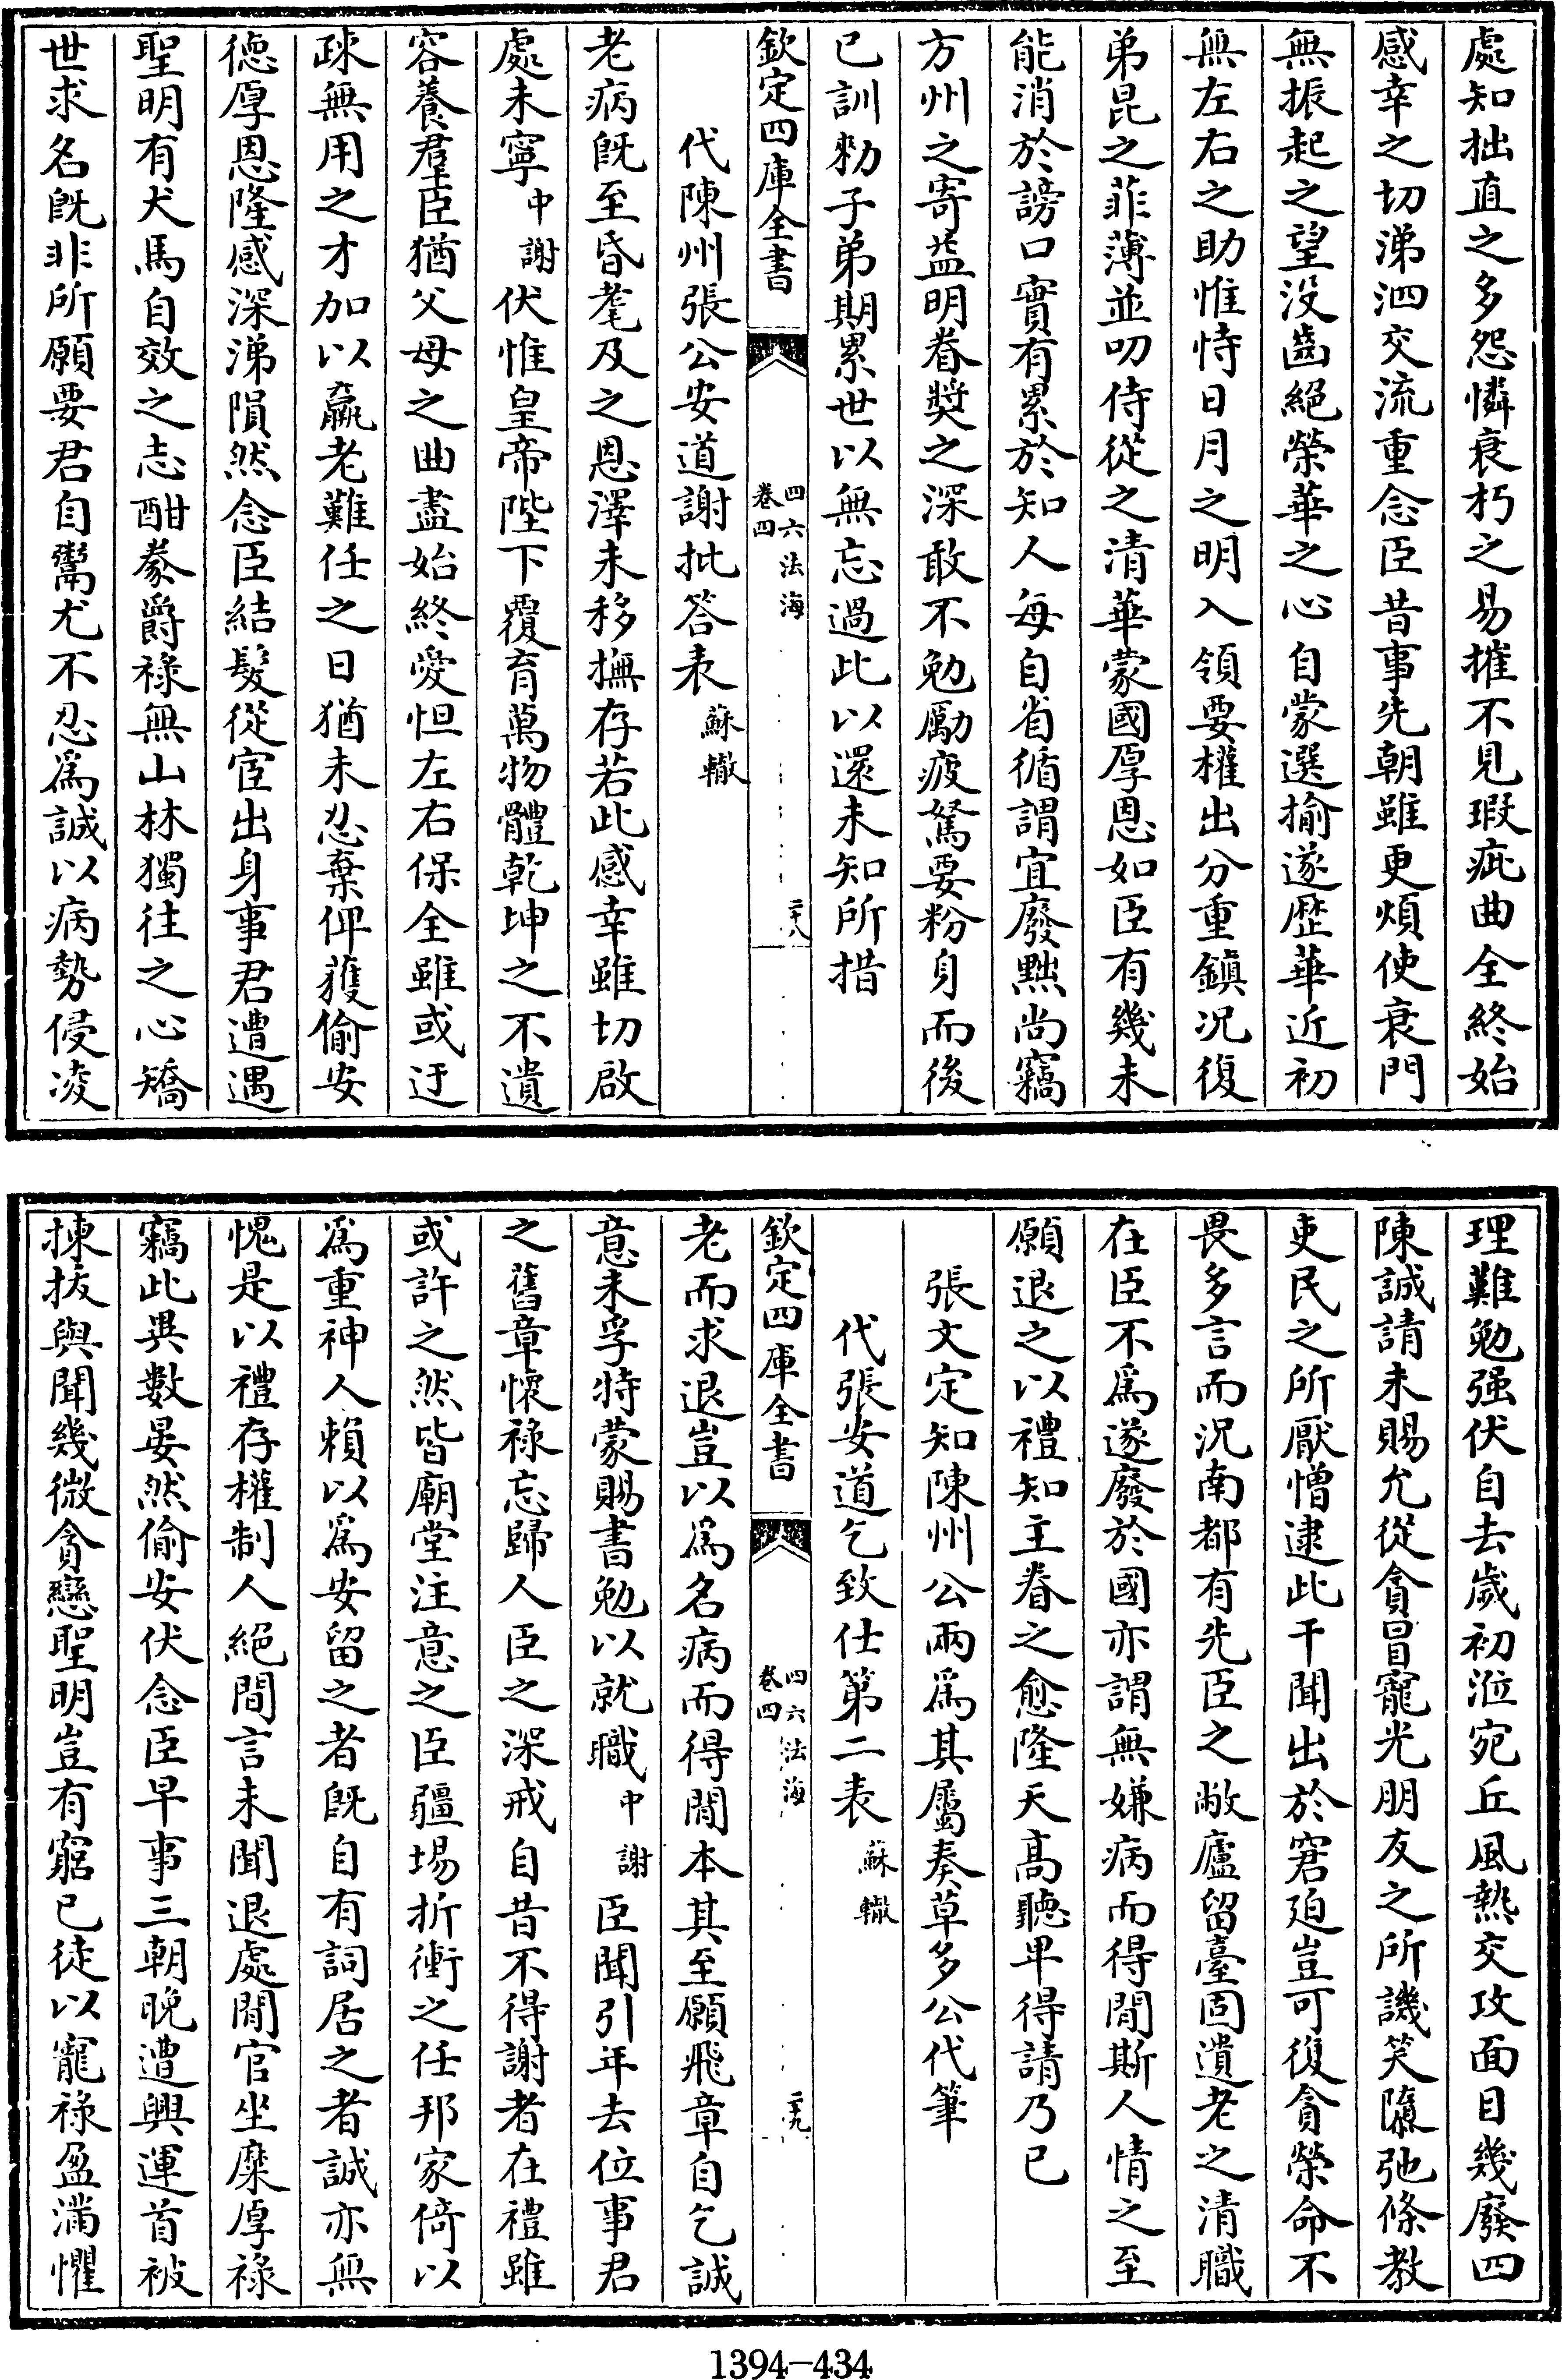 處知拙直之多怨憐衰朽之易摧不見瑕疵曲全終始
感幸之切涕泗交流重念臣昔事先朝雖更煩使衰門
無振起之望没齒絕榮華之心自蒙選掄遂歴華近初
無左右之助惟恃日月之明入領要權出分重鎮况復
弟昆之菲薄並叨侍從之清華蒙國厚恩如臣有幾未
能消於謗口實有累於知人每自省循謂宜廢黜尚竊
方州之寄益明眷奬之深敢不勉勵疲駑要粉身而後
已訓勑子弟期累世以無忘過此以還未知所措
欽定四庫全書
四六法海
卷四
二十八
代陳州張公安道謝批答表 蘇轍
老病既至昏耄及之恩澤未移撫存若此感幸雖切啟
處未寧中謝伏惟皇帝陛下覆育萬物體乾坤之不遺
容養羣臣猶父母之曲盡始終愛怛左右保全雖或迂
疎無用之才加以羸老難任之日猶未忍棄俾獲偷安
德厚恩隆感深涕隕然念臣結髮從宦出身事君遭遇
聖明有犬馬自效之志酣豢爵祿無山林獨往之心矯
世求名既非所願要君自鬻尤不忍為誠以病勢侵凌
理難勉强伏自去歲初涖宛丘風熱交攻面目幾廢四
陳誠請未賜允從貪冒寵光朋友之所譏笑隳弛條教
吏民之所厭憎逮此干聞出於窘迫豈可復貪榮命不
畏多言而况南都有先臣之敝廬留臺固遺老之清職
在臣不為遂廢於國亦謂無嫌病而得閒斯人情之至
願退之以禮知主眷之愈隆天高聽卑得請乃已
張文定知陳州公兩為其屬奏草多公代筆
代張安道乞致仕第二表 蘇轍
欽定四庫全書
四六法海
卷四
二十九
老而求退豈以為名病而得閒本其至願飛章自乞誠
意未孚特蒙賜書勉以就職中謝臣聞引年去位事君
之舊章懷祿忘歸人臣之深戒自昔不得謝者在禮雖
或許之然皆廟堂注意之臣疆場折衝之任邦家倚以
為重神人賴以為安留之者既自有詞居之者誠亦無
愧是以禮存權制人絕間言未聞退處閒官坐糜厚祿
竊此異數晏然偷安伏念臣早事三朝晚遭興運首被
揀拔與聞幾微貪戀聖明豈有窮已徒以寵祿盈滿懼
1394-434